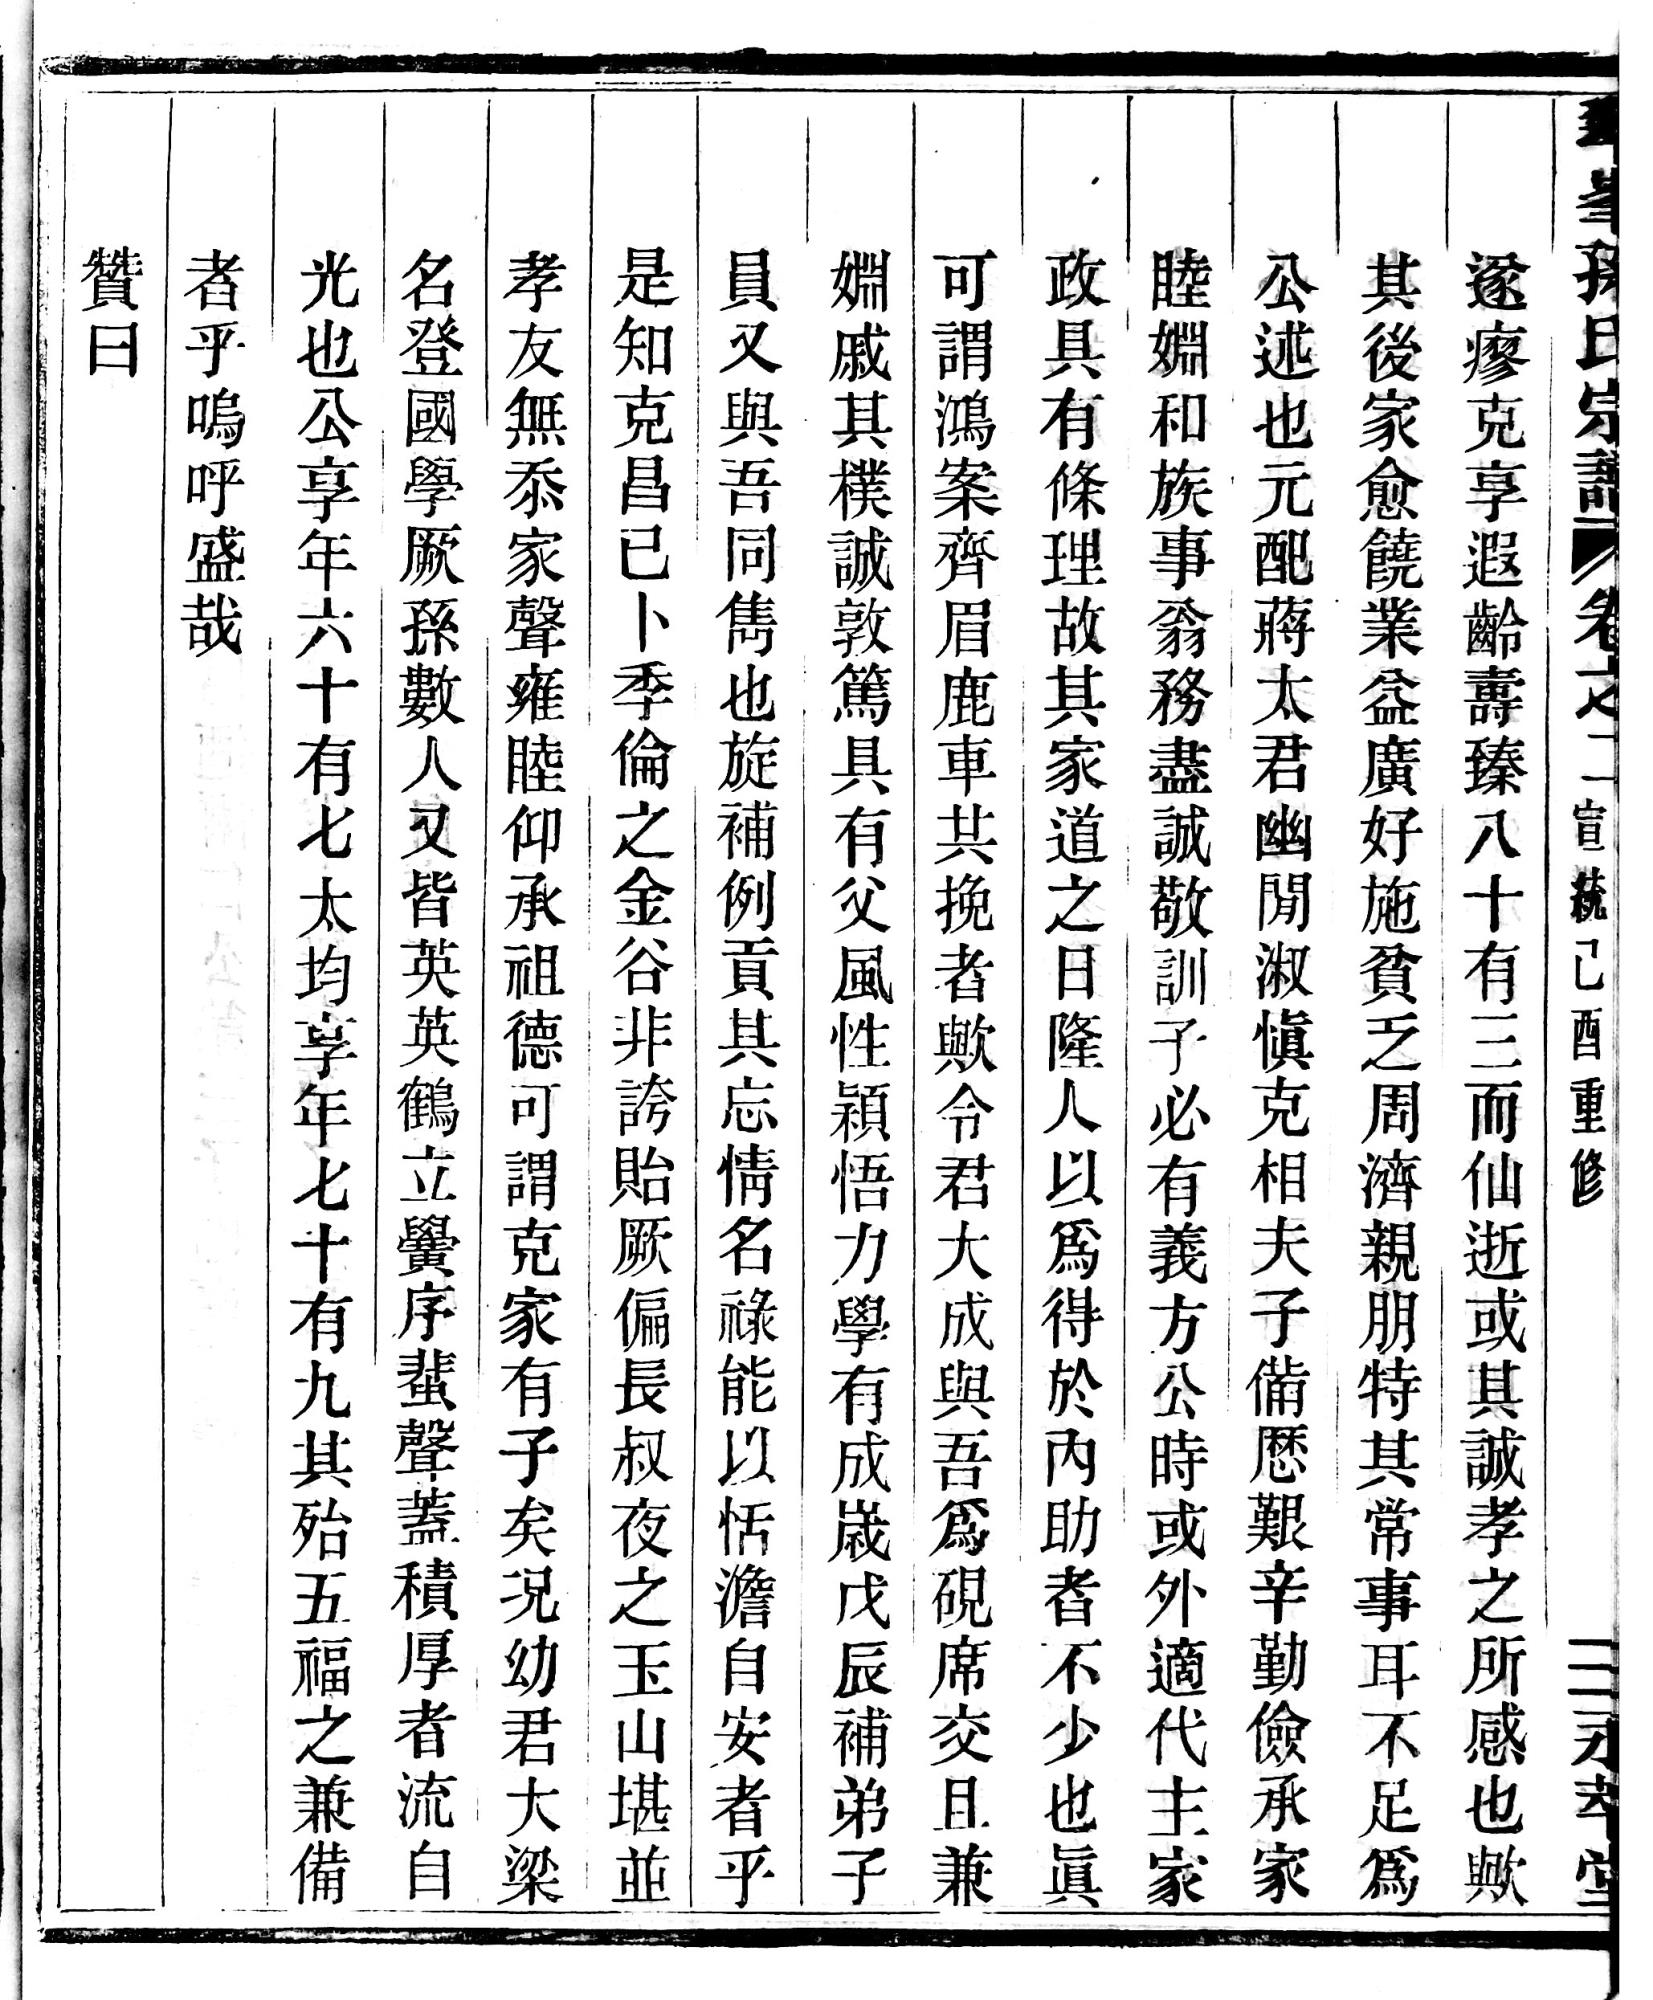 孫氏宗譜 卷之二 宣統己酉重修 三 永孝堂
遂瘳克享遐齡壽臻八十有三而仙逝或其誠孝之所感也歟
其後家愈饒業益廣好施貧乏周濟親朋特其常事耳不足爲
公述也元配蔣太君幽閒淑愼克相夫子備歷艱辛勤儉承家
睦婣和族事翁務盡誠敬訓子必有義方公時或外適代主家
政具有條理故其家道之日隆人以爲得於內助者不少也眞
可謂鴻案齊眉鹿車共挽者歟令君大成與吾爲硯席交且兼
婣戚其樸誠敦篤具有父風性穎悟力學有成歲戊辰補弟子
員又與吾同雋也旋補例貢其忘情名祿能以恬澹自安者乎
是知克昌已卜季倫之金谷非誇貽厥偏長叔夜之玉山堪並
孝友無忝家聲雍睦仰承祖德可謂克家有子矣况幼君大梁
名登國學厥孫數人又皆英英鶴立黌序蜚聲蓋積厚者流自
光也公享年六十有七太均享年七十有九其殆五福之兼備
者乎嗚呼盛哉
贊曰